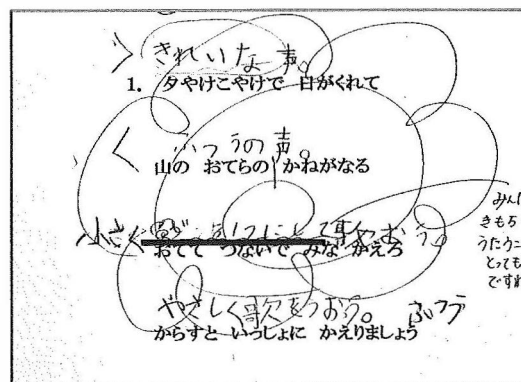 きれいな声。
1. 夕やけこやけで 日がくれて
ふつうの声。
山の おてらの かねがなる
小さく
おてて つないで みな かえろ
やさしく歌をうおう。 ふつう
からすと いっしょに かえりましょう
きもち
とっても